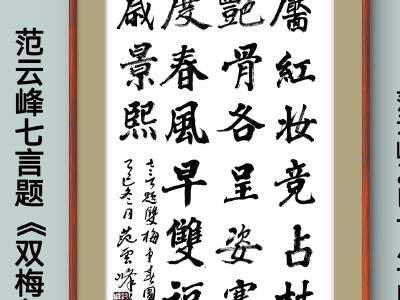 范云峰七言题《双梅
紅妆竞占
艷骨各呈姿寒
度春風早雙福
歲景熙
七言題雙梅争春圖
乙巳冬月范雲峰